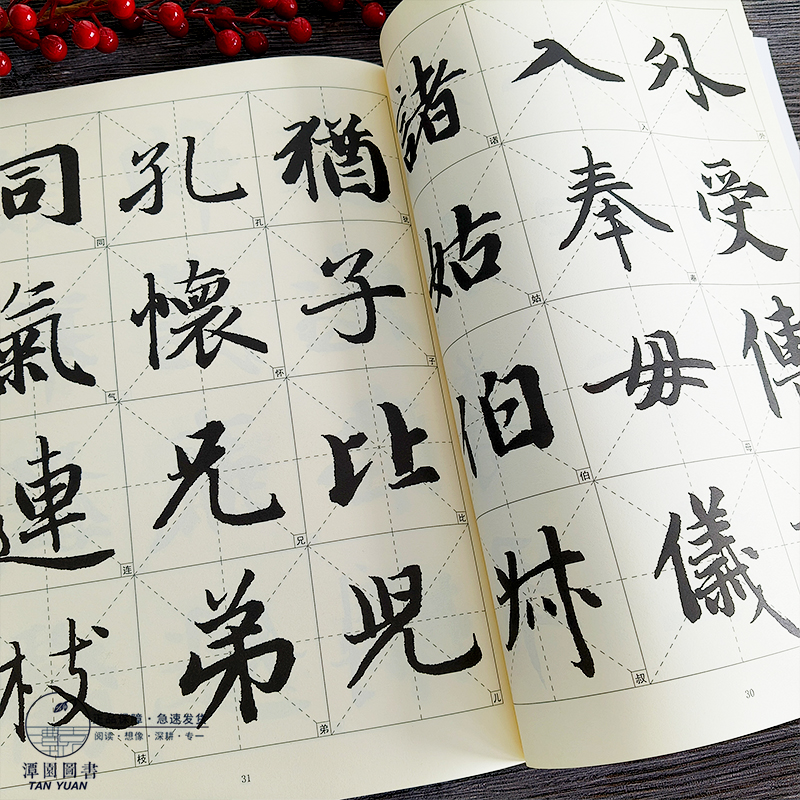 外受傳
入奉母儀
入
奉
母
諸姑伯叔
诸
姑
伯
叔
30
猶子比兒
犹
子
比
儿
孔懷兄弟
孔
怀
兄
弟
同氣連枝
同
气
连
枝
31
正品保障·急速发货
阅读·想像·深耕·专一
潭園圖書
TAN YUAN